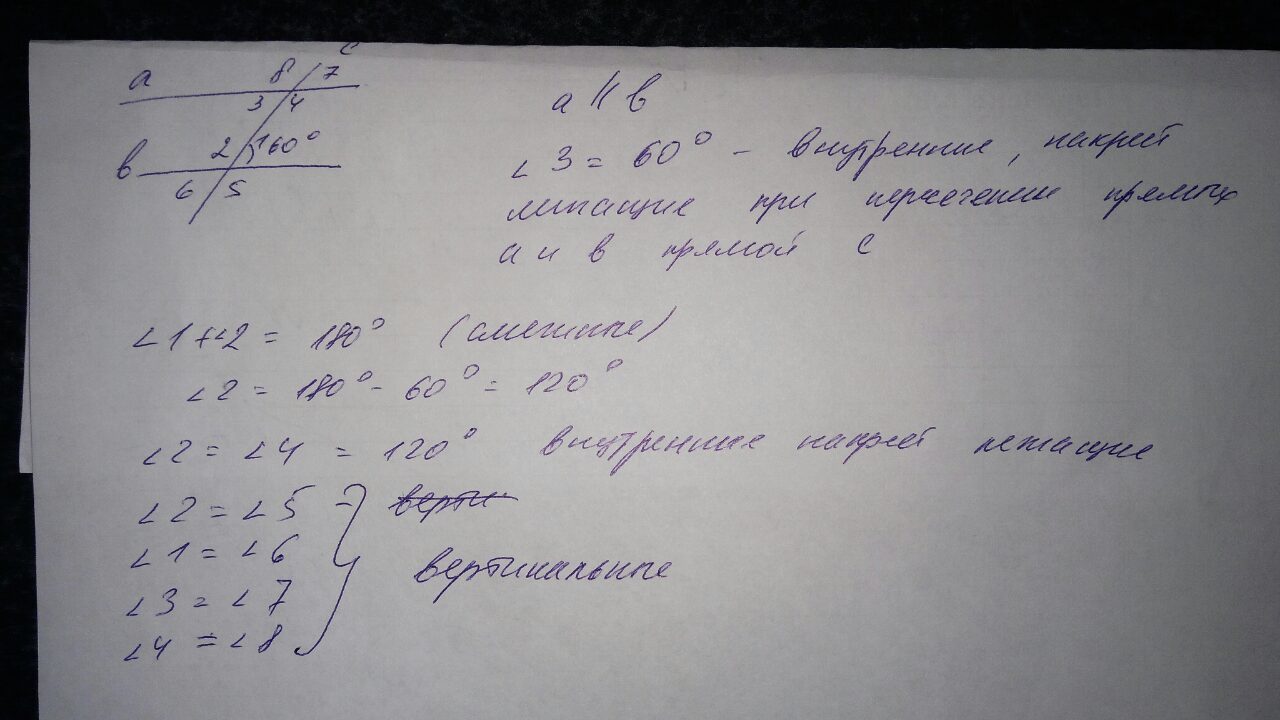 с
а 8 7
3 4
2 1 60°
в
6 5
а || в
∠3 = 60° – внутренние, накрест
лежащие при пересечении прямых
а и в прямой с
∠1+∠2 = 180° (смежные)
∠2 = 180° - 60° = 120°
∠2 = ∠4 = 120° внутренние накрест лежащие
∠2 = ∠5 - верти
∠1 = ∠6
вертикальные
∠3 = ∠7
∠4 = ∠8